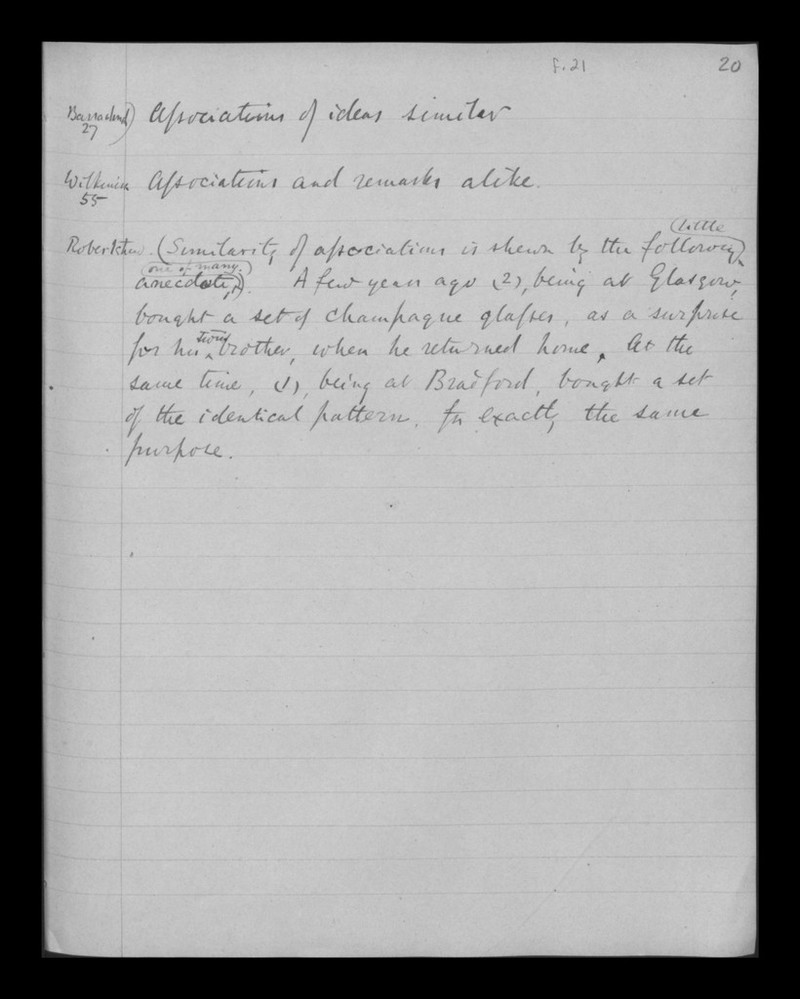 f.21 20
Associations of ideas similar
27
Wilkinson Associations and remarks alike.
55
(little
(Similarity of associations is shewn by the following)
(one of many.)
anecdote,). A few years ago (2), being at Glasgow,
bought a set of champagne glasses, as a surprise
twin
for his ^ brother, when he returned home. At the
same time, (1), being at Bradford, bought a set
of the identical pattern. for exactly the same
purpose.